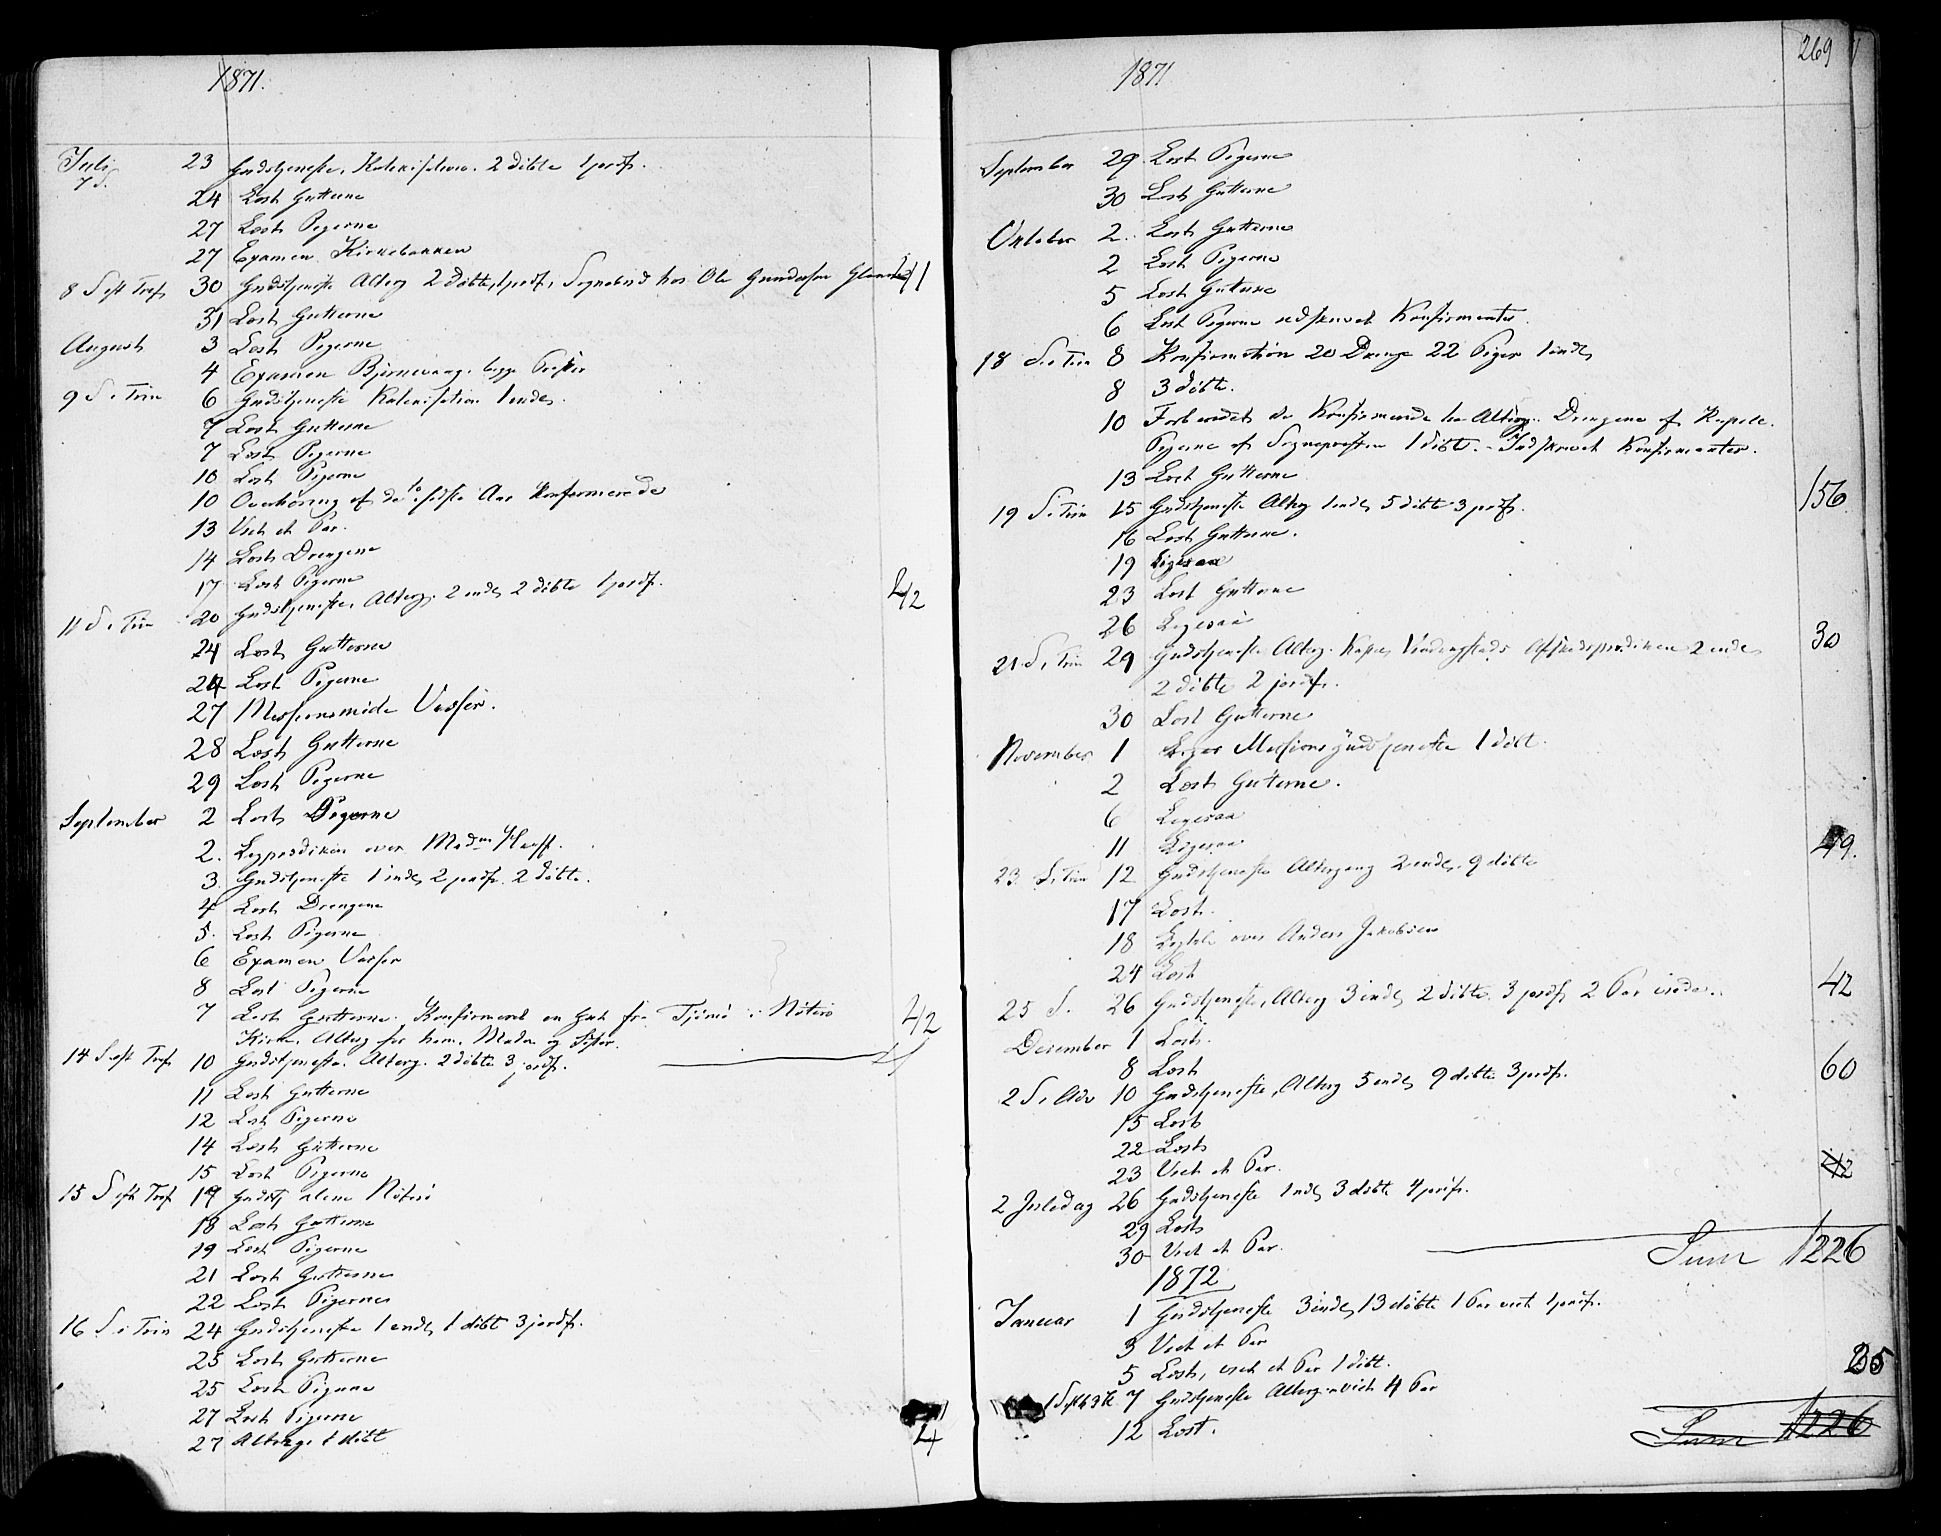 1871.
Juli 23 Gudstjeneste, Katekisation. 2 døbte 1 jordf.
7 S.
24 Læst Gutterne
27 Læst Pigerne
27 Examen Kirkebakken
8 S eft Tref 30 Gudstjeneste Alterg 2 døbte, 1 jordf, Sognebud hos Ole Gundersen 41
31 Læst Gutterne
August 3 Læst Pigerne
4 Examen Bjørnevaag. begge Prester
9 S. i Trin 6 Gudstjeneste Katekisation 1 indl.
7 Læst Gutterne
7 Læst Pigerne
10 Læst Pigerne
10 Overhøring af de to sidste Aar Konfirmerede
13 Viet et Par.
14 Læst Drengene
17 Læst Pigerne
11 S. i Trin 20 Gudstjeneste, Alterg. 2 indl. 2 døbte 1 jordf. 42
24 Læst Gutterne
24 Læst Pigerne
27 Missionsmøde Vasser.
28 Læst Gutterne
29 Læst Pigerne
September 2 Læst Pigerne
2. Ligprædiken over Madm
3 Gudstjeneste 1 indl, 2 jordf. 2 døbte.
4 Læst Drengene
5. Læst Pigerne
6 Examen Vasser
8 Læst Pigerne
7 Læst Gutterne. Konfirmeret en Gut fra Tjømø i Nøterø 42
Kirke. Alterg for ham, Moder og Søster.
14 S. eft Tref 10 Gudstjeneste. Alterg. 2 døbte 3 jordf.
11 Læst Gutterne
12 Læst Pigerne
14 Læst Gutterne
15 Læst Pigerne
15 S eft Tref 17 Gudstj alene Nøterø
18 Læst Gutterne
19 Læst Pigerne
21 Læst Gutterne
22 Læst Pigerne
16 S i Trin 24 Gudstjeneste 1 indl, 1 døbt 3 jordf.
25 Læst Gutterne
25 Læst Pigerne
27 Læst Pigerne
27 Alterg. 1 døbt 4
269
1871
September 29 Læst Pigerne
30 Læst Gutterne
Oktober 2. Læst Gutterne
2 Læst Pigerne
5 Læst Gutterne
6 Læst Pigerne udskrevet Konfirmanter
18 S. i Trin 8 Konfirmation 20 Drenge 22 Piger 1 indl,
8 3 døbte.
10 Forberedet de Konfirmerede til Alterg. Drengene af Kapel.
Pigerne af Sognepresten 1 døbt. - Indskrevet Konfirmanter.
13 Læst Gutterne
19 S. i Trin 15 Gudstjeneste Alterg 1 indl, 5 døbte 3 jordf. 156
16 Læst Gutterne.
19 Ligesaa
23 Læst Gutterne
26 Ligesaa
21. S. i Trin 29 Gudstjeneste Alterg. Kapel. Afskedsprædiken 2 indl, 30
2 døbte 2 jordf.
30 Læst Gutterne
November 1 Missionsgudstjeneste 1 døbt.
2 Læst Gutterne.
6 Ligesaa
11 Ligesaa
23. S. i Trin 12 Gudstjeneste Altergang 2 indl. 9 døbte 49.
17 Læst.
18 Ligtale over Anders Jakobsen
24 Læst
25 S. 26 Gudstjeneste, Alterg 3 indl, 2 døbte. 3 jordf, 2 Par viede. 42
December 1 Læst.
8 Læst
2 S. i Adv 10 Gudstjeneste, Alterg 5 indl, 9 døbte 3 jordf. 60
15 Læst
22 Læst
23 Viet et Par. 42
2 Juledag 26 Gudstjeneste 1 indl, 3 døbte 4 jordf.
29 Læst
30 Viet et Par. Sum 1226
1872
Januar 1 Gudstjeneste 3 indl, 13 døbte 1 Par viet 1 jordf.
3 Viet et Par
5 Læst, viet et Par 1 døbt. 25
1 S eft h 3 K 7 Gudstjeneste Alterg. viet 4 Par
12 Læst. Sum 1226